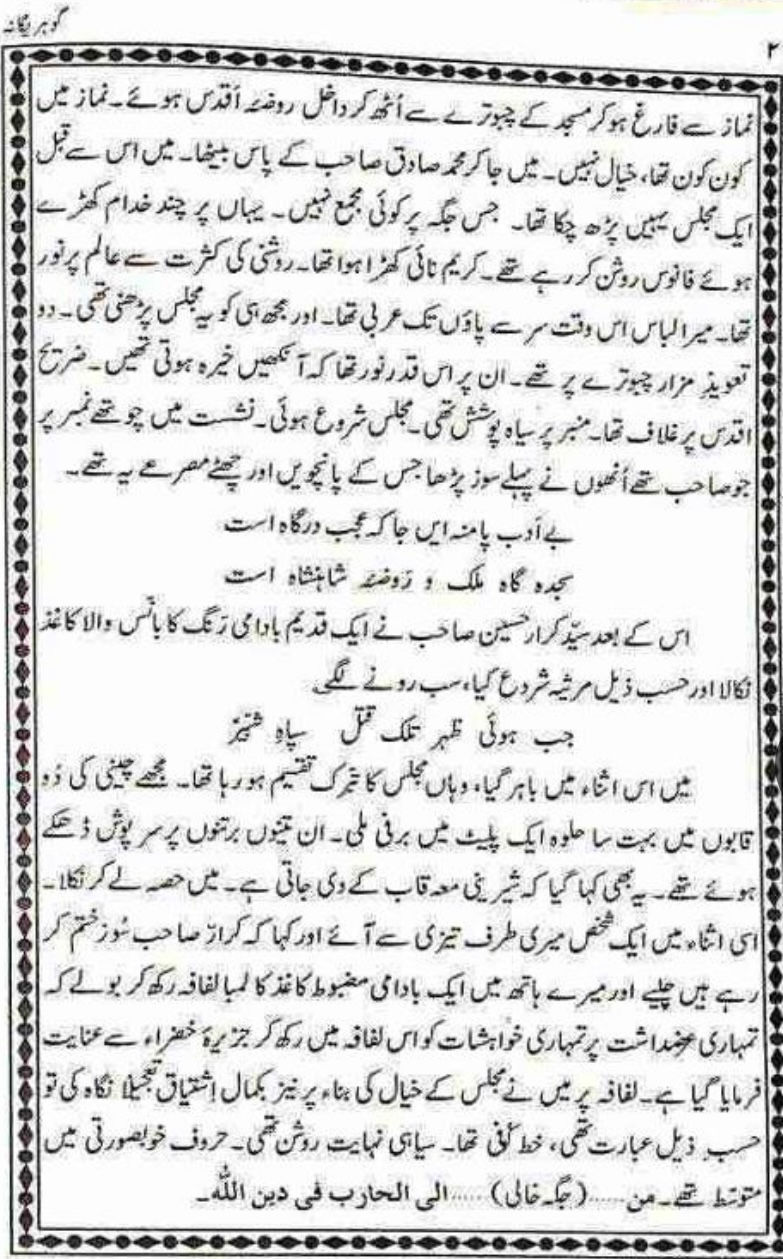 گوہر یگانہ
۲
نماز سے فارغ ہوکر مسجد کے چبوترے سے اُٹھ کر داخل روضئہ اَقدس ہوئے۔ نماز میں
کون کون تھا، خیال نہیں۔ میں جا کر محمد صادق صاحب کے پاس بیٹھا۔ میں اس سے قبل
ایک مجلس یہیں پڑھ چکا تھا۔ جس جگہ پر کوئی مجمع نہیں۔ یہاں پر چند خدام کھڑے
ہوئے فانوس روشن کررہے تھے۔ کریم نائی کھڑا ہوا تھا۔ روشنی کی کثرت سے عالم پرنور
تھا۔ میرا لباس اس وقت سر سے پاؤں تک عربی تھا۔ اور مجھ ہی کو یہ مجلس پڑھنی تھی۔ دو
تعویذِ مزار چبوترے پر تھے۔ ان پر اس قدر نور تھا کہ آنکھیں خیرہ ہوتی تھیں۔ ضریح
اقدس پر غلاف تھا۔ منبر پر سیاہ پوشش تھی۔ مجلس شروع ہوئی۔ نشست میں چوتھے نمبر پر
جو صاحب تھے اُنھوں نے پہلے سوز پڑھا جس کے پانچویں اور چھٹے مصرعے یہ تھے۔
بے اَدب پامنہ ایں جا کہ عجب درگاہ است
سجدہ گاہ ملک و رَوضئہ شاہنشاہ است
اس کے بعد سیّد کرار حسین صاحب نے ایک قدیم بادامی رَنگ کا بانس والا کاغذ
نکالا اور حسب ذیل مرثیہ شروع کیا، سب رونے لگے۔
جب ہوئی ظہر تلک قتل سپاہِ شبیرؑ
میں اس اثناء میں باہر گیا، وہاں مجلس کا تبرک تقسیم ہو رہا تھا۔ مجھے چینی کی دُہ
قابوں میں بہت سا حلوہ ایک پلیٹ میں برفی ملی۔ ان تینوں برتنوں پر سر پوش ڈھکے
ہوئے تھے۔ یہ بھی کہا گیا کہ شیرینی معہ قاب کے دی جاتی ہے۔ میں حصہ لے کر نکلا۔
اسی اثناء میں ایک شخص میری طرف تیزی سے آئے اور کہا کہ کرار صاحب سُوز ختم کر
رہے ہیں چلیے اور میرے ہاتھ میں ایک بادامی مضبوط کاغذ کا لمبا لفافہ رکھ کر بولے کہ
تمہاری عرضداشت پر تمہاری خواہشات کو اس لفافہ میں رکھ کر جزیرۂ خضراء سے عنایت
فرمایا گیا ہے۔ لفافہ پر میں نے مجلس کے خیال کی بناء پر نیز بکمال اِشتیاق تعجیلاً نگاہ کی تو
حسبِ ذیل عبارت تھی، خط کوفی تھا۔ سیاہی نہایت روشن تھی۔ حروف خوبصورتی میں
متوسّط تھے۔ من ...... (جگہ خالی) ...... الی الحارب فی دین اللّٰہ۔